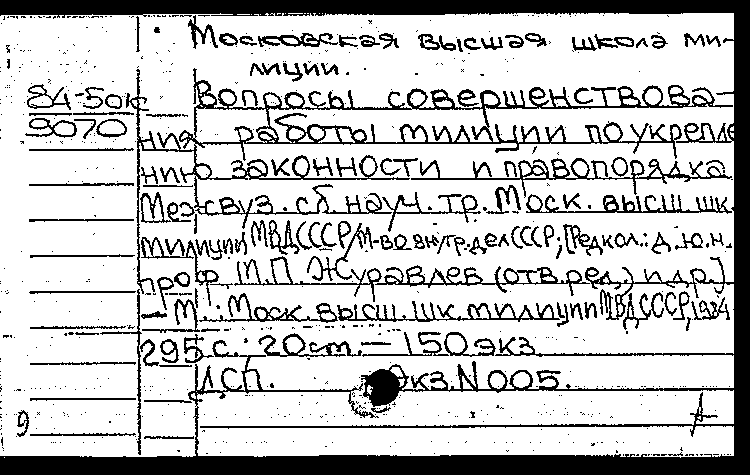 Московская высшая школа ми-
лиции.
84-50к
9070
Вопросы совершенствова-
ния работы милиции по укрепле
нию законности и правопорядка
Межвуз. сб. науч. тр. Моск. высш. шк.
милиции МВД СССР/М-во внутр. дел СССР; [Редкол.: д.ю.н.
проф М.П. Журавлев (отв. ред.) и др.]
— М.: Моск. высш. шк. милиции МВД СССР, 1984
295 с.: 20 см. — 150 экз.
ДСП. Экз. N 005.
9